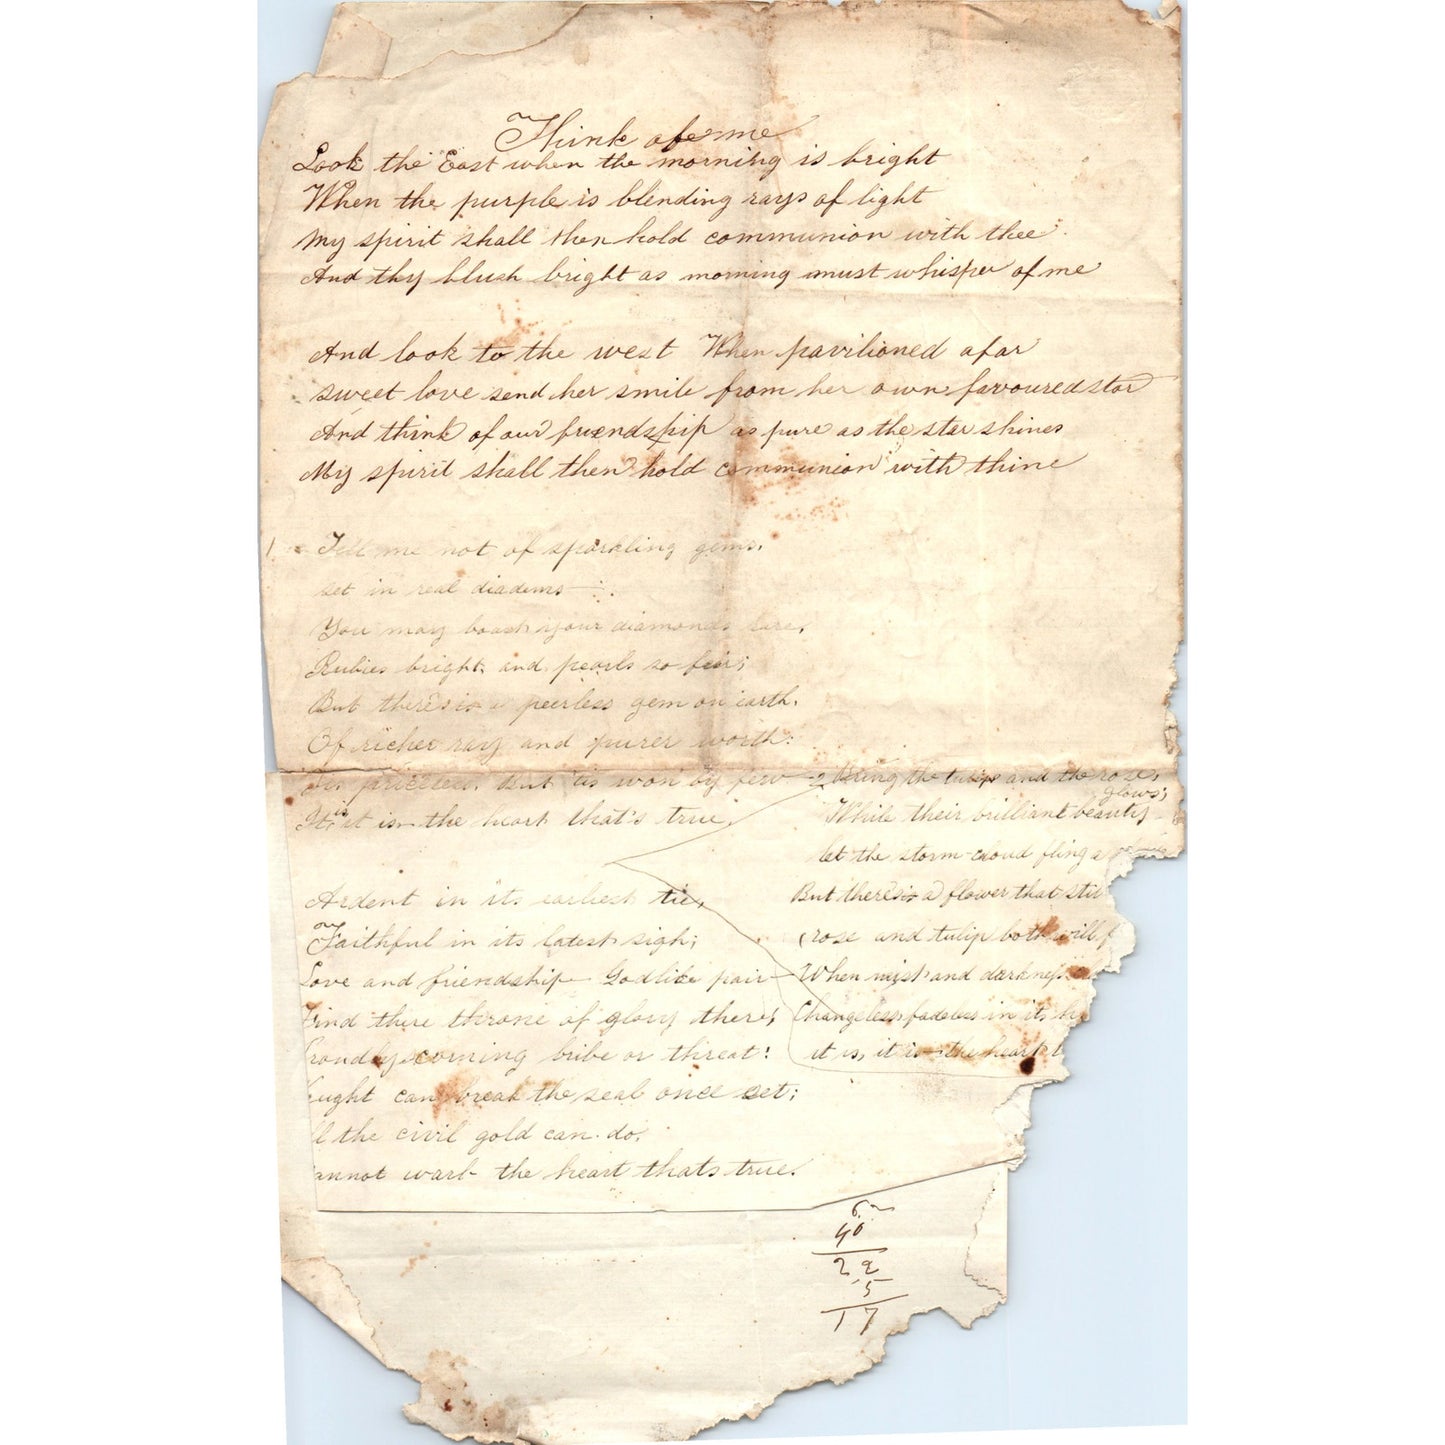 Think of me
Look the East when the morning is bright
When the purple is blending rays of light
My spirit shall then hold communion with thee
And thy blush bright as morning must whisper of me
And look to the west When pavilioned afar
sweet love send her smile from her own favoured star
And think of our friendship as pure as the star shines
My spirit shall then hold communion with thine
1 Tell me not of sparkling gems,
set in real diadems
You may boast your diamonds rare,
Rubies bright, and pearls so fair;
But there's is a peerless gem on earth,
Of richer ray and purer worth:
priceless, But 'tis won by few
It is it is the heart that's true.
Ardent in its earliest tie,
Faithful in its latest sigh;
Love and friendship Godlike pair
Find there throne of glory there,
roudly scorning bribe or threat!
ught can break the seal once set;
ll the civil gold can do,
annot warb the heart thats true.
2 Bring the tulip and the rose,
While their brilliant beauty glows;
let the storm-cloud fling a
But there's is a flower that stil
rose and tulip both will f
When mist and darkness
Changeless fadeless in its h
it is, it is the heart t
62
40
22
5
17